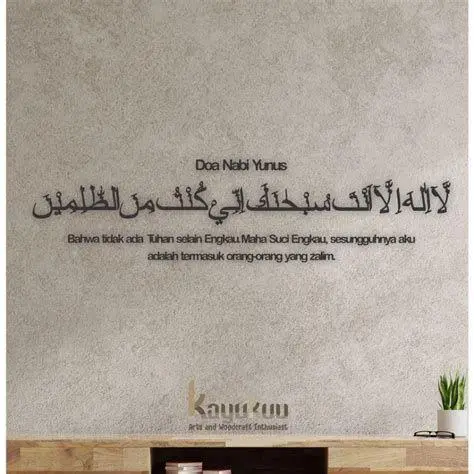 Doa Nabi Yunus
لَآ اِلٰهَ اِلَّآ اَنْتَ سُبْحٰنَكَ اِنِّيْ كُنْتُ مِنَ الظّٰلِمِيْنَ
Bahwa tidak ada Tuhan selain Engkau.Maha Suci Engkau, sesungguhnya aku
adalah termasuk orang-orang yang zalim.
Kayukuu
Arts and Woodcraft Enthusiast